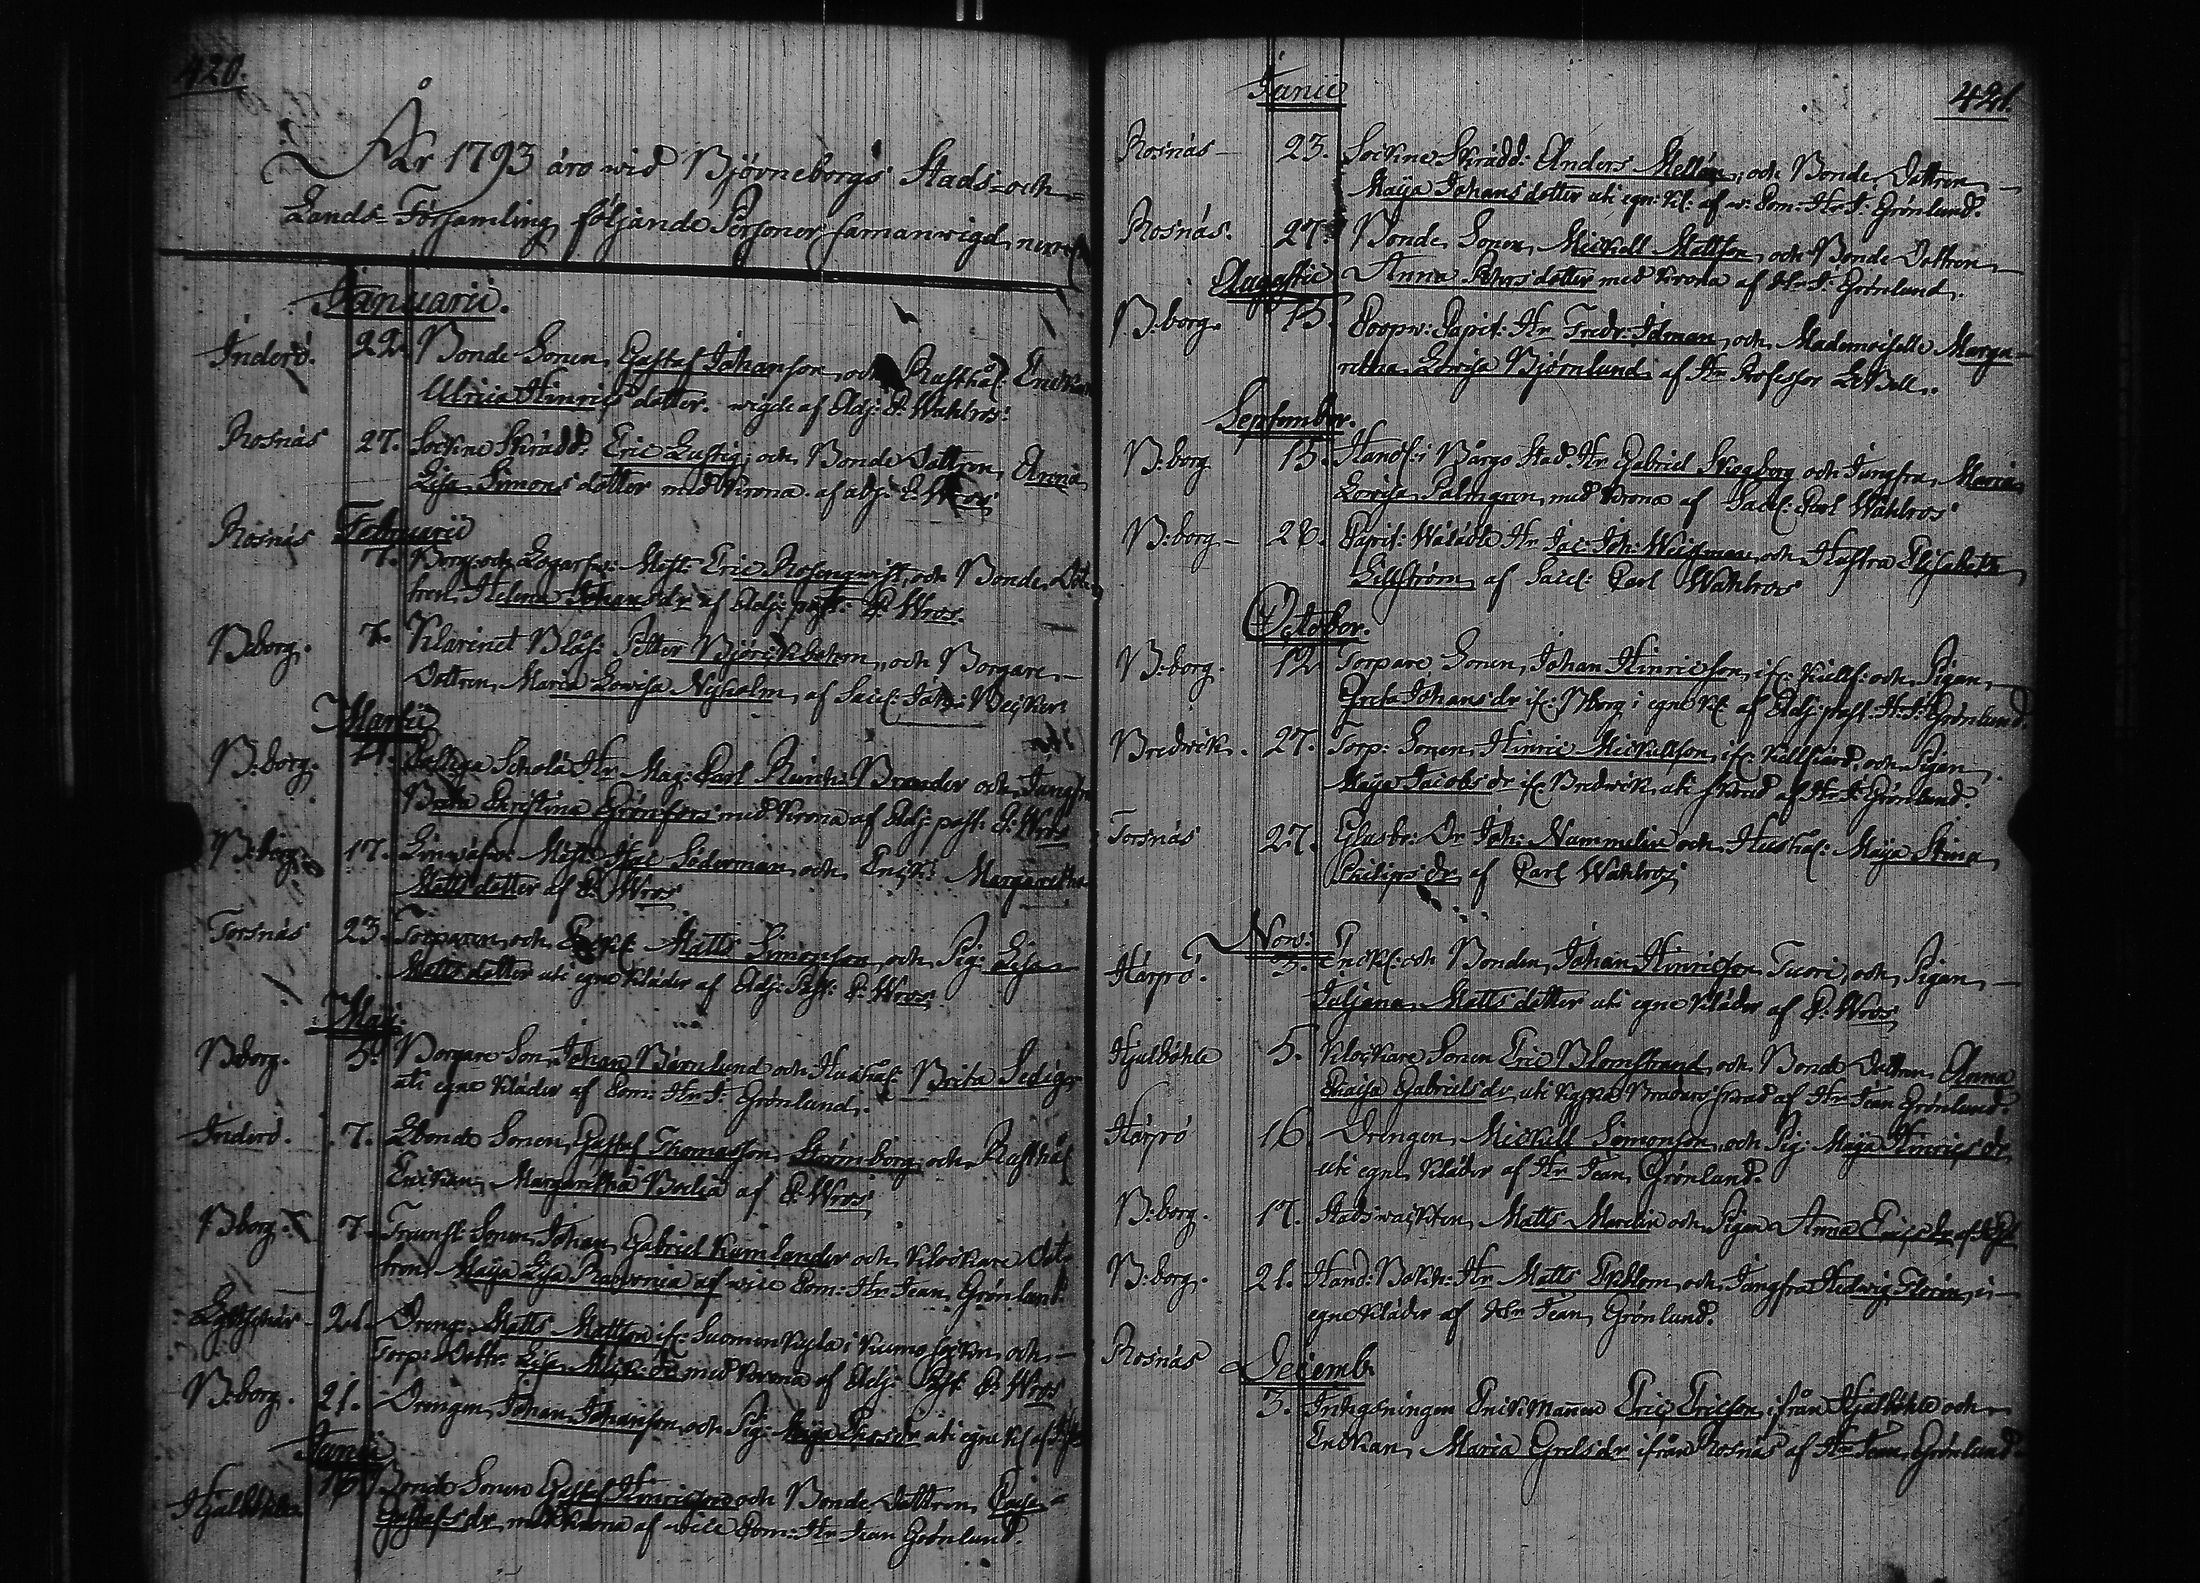 420.
År 1793 äro wid Björneborgs Stads- och
Lands-Församling följande Personer sammanwigd,
Januarii.
Inderö. 22. Bonde Sonen Gustaf Johanson, och Rusthål: Enckan
Ulrica Hinrics dotter. wigde af Adj: P: Wahlros.
Rosnäs 27. Sockne Skrädd: Eric Lustig, och Bonde Dottren Anna
Lisa Simons dotter med Krona af adj: P: Wros
Rosnäs Februarii
7. Borg: och Mäst: Eric Rosenqwist, och Bonde Dot-
tren Helena Johans dr af Adj: past: P: Wros.
B:borg. 7. Klarinet Blås: Petter Björckbohm, och Borgare
Dottren Maria Lowisa Nyholm, af Sacel:
Martii
B:borg. 14. Schola Hr Mag: Carl Brander och Jungfr
Christina Grönfors med Krona af Adj: past: P: Wros
B:borg. 17. Mäst: Söderman, och Enck: Margaretha
Matts dotter af P: Wros
Torsnäs 23. Torparen och Matts Simonson, och Pig: Lisa
Matts dotter uti egne Kläder af Adj: Past: P: Wros.
Maij.
B:borg. 5. Borgare Son Johan Björnlund och Hushål: Brita Sedig,
uti egne Kläder af Com: Hr J: Grönlund.
Inderö. 7. Bonde Sonen Gustaf Thomasson Strömborg, och Rusthål
Enckan Margaretha af P: Wros
B:borg. 7. Sonen Johan Gabriel Kumlander och Klockare Dot-
tren Maija Lisa af vice Com: Hr Jean Grönlund.
21. Dreng: Matts Mattson if: Suomenkylä i Kumo Sockn, och
Torp: Dottr: Lisa dr med Krona af Adj: Past P: Wros
B:borg. 21. Drengen Johan Johanson, och Pig: Maija dr uti egne Kl: af
Junii
Hjulböhle 16. Bonde Sonen Gustaf Hinricson och Bonde Dottren Caisa
Gustafs dr med Krona af vice Com: Hr Jean Grönlund.
421.
Junii
Rosnäs 23. Sockne Skrädd: Anders Mellin, och Bonde Dottren
Maija Johans dotter uti egn: Kl: af v: Com: Hr J: Grönlund.
Rosnäs. 27. Bonde Sonen Mickell Mattson, och Bonde Dottren
Anna Pehrs dotter med Krona af Hr J: Grönlund.
Augustii
B:borg. 15. Coopv: Capit: Hr Fredr: Idman, och Mademoiselle Marga-
retha Lovisa Björnlund, af Hr Professor LeBell.
September.
B:borg 15. Handl: i Borgo Stad Hr Gabriel Stagborg och Jungfru Maria
Lovisa Palmgren, med Krona af Sacel: Carl Wahlros
B:borg 28. Capit: Wälädle Hr Jac: Joh: Weissman, och Hustru Elisabeth
Lillström, af Sacel: Carl Wahlros
October.
B:borg. 12. Torpare Sonen Johan Hinricson, if: Kullf: och Pigan
Greta Johans dr if: B:borg i egne Kl: af Adj: past: H: J: Grönlund.
Bredwik. 27. Torp: Sonen Hinric Mickellson, if: Kullfiärd, och Pigan
Maija Jacobs dr if: Bredwik, uti skrud af Hr J: Grönlund.
Torsnäs 27. Glasbr: Dr Joh: Nummelin och Hushål: Maija Stina
Philips dr, af Carl Wahlros
Nov:
Härpö. 3. Enckl: och Bonden Johan Hinricson Tuori, och Pigan
Juljana Matts dotter uti egne Kläder af P: Wros
Hjulböhle 5. Klockare Sonen Eric Blomstrand, och Bonde Dottren Anna
Caisa Gabriels dr, uti Brudars skrud af Hr Jean Grönlund.
Härpö 16. Drengen Mickell Simonson, och Pig: Maija Hinrics dr
uti egne Kläder af Hr Jean Grönlund.
B:borg. 17. Stadswackten Matts Mardin och Pigan Anna Erics dr af
B:borg. 21. Hand: Bokh: Hr Matts Ekblom, och Jungfru Hedwig Florin, i
egne Kläder af Hr Jean Grönlund.
Rosnäs Decemb.
3. Enckmannen Eric Ericson, ifrån Hjulböhle och
Enckan Maria Grels dr ifrån Rosnäs af Hr Jean Grönlund.